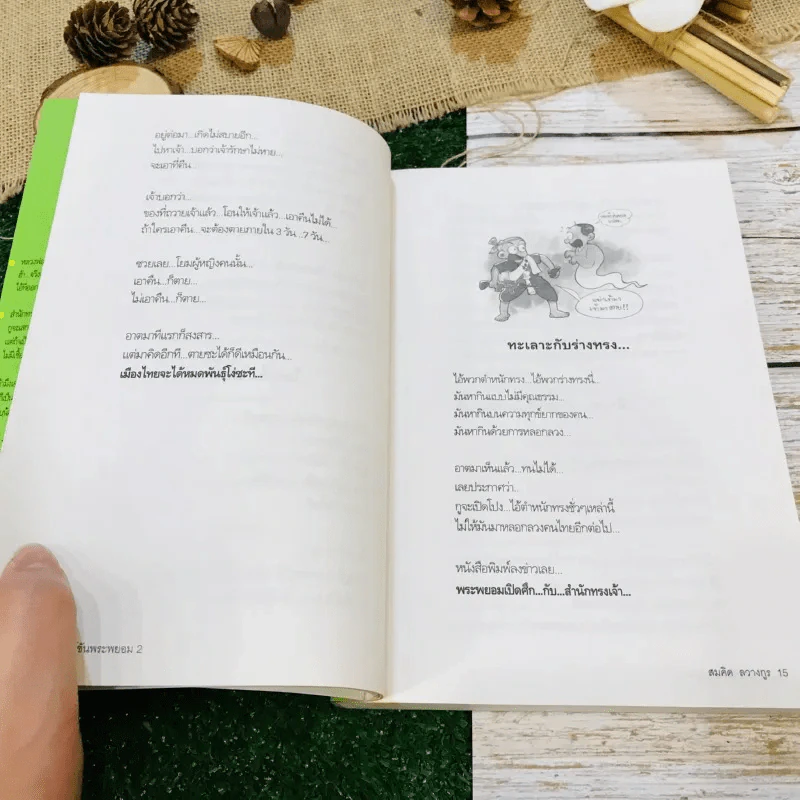 อยู่ต่อมา...เกิดไม่สบายอีก...
ไปหาเจ้า...บอกว่าเจ้ารักษาไม่หาย...
จะเอาที่คืน...
เจ้าบอกว่า...
ของที่ถวายเจ้าแล้ว...โอนให้เจ้าแล้ว...เอาคืนไม่ได้...
ถ้าใครเอาคืน...จะต้องตายภายใน 3 วัน ..7 วัน...
ซวยเลย...โยมผู้หญิงคนนั้น...
เอาคืน...ก็ตาย...
ไม่เอาคืน...ก็ตาย...
อาตมาทีแรกก็สงสาร...
แต่มาคิดอีกที...ตายซะได้ก็ดีเหมือนกัน...
เมืองไทยจะได้หมดพันธุ์โง่ซะที...
ขันพระพยอม 2
ทะเลาะกับร่างทรง...
ไอ้พวกตำหนักทรง...ไอ้พวกร่างทรงนี่...
มันหากินแบบไม่มีคุณธรรม...
มันหากินบนความทุกข์ยากของคน...
มันหากินด้วยการหลอกลวง...
อาตมาเห็นแล้ว...ทนไม่ได้...
เลยประกาศว่า...
กูจะเปิดโปง...ไอ้ตำหนักทรงชั่วๆเหล่านี้
ไม่ให้มันมาหลอกลวงคนไทยอีกต่อไป...
หนังสือพิมพ์ลงข่าวเลย...
พระพยอมเปิดศึก...กับ...สำนักทรงเจ้า...
สมคิด ลวางกูร 15